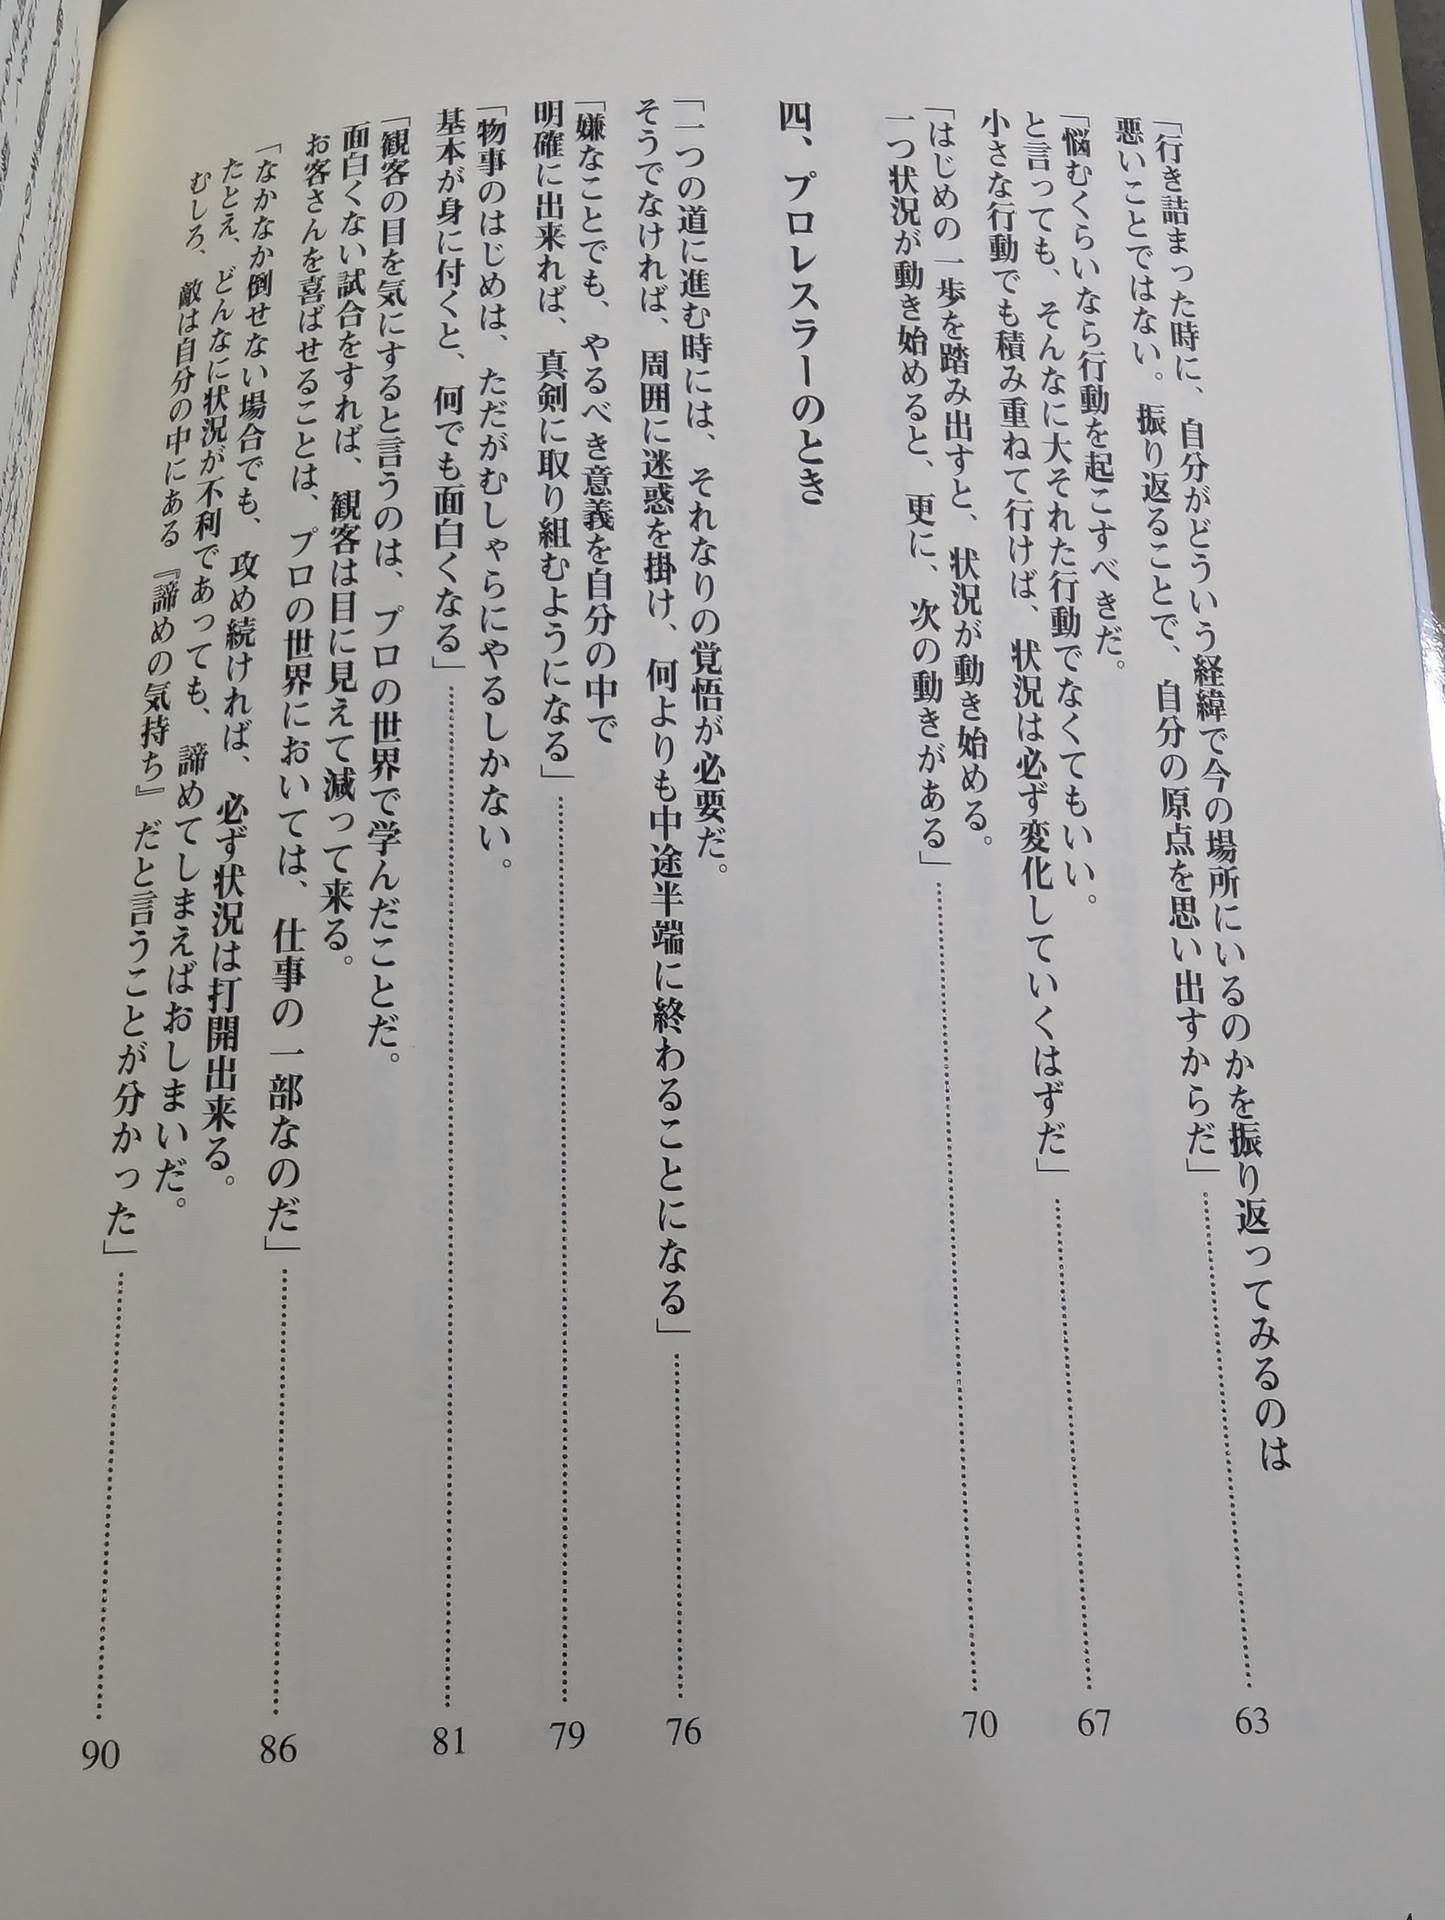 「行き詰まった時に、自分がどういう経緯で今の場所にいるのかを振り返ってみるのは
悪いことではない。振り返ることで、自分の原点を思い出すからだ」
63
「悩むくらいなら行動を起こすべきだ。
と言っても、そんなに大それた行動でなくてもいい。
小さな行動でも積み重ねて行けば、状況は必ず変化していくはずだ」
67
「はじめの一歩を踏み出すと、状況が動き始める。
一つ状況が動き始めると、更に、次の動きがある」
70
四、プロレスラーのとき
「一つの道に進む時には、それなりの覚悟が必要だ。
そうでなければ、周囲に迷惑を掛け、何よりも中途半端に終わることになる」
76
「嫌なことでも、やるべき意義を自分の中で
明確に出来れば、真剣に取り組むようになる」
79
「物事のはじめは、ただがむしゃらにやるしかない。
基本が身に付くと、何でも面白くなる」
81
「観客の目を気にすると言うのは、プロの世界で学んだことだ。
面白くない試合をすれば、観客は目に見えて減って来る。
お客さんを喜ばせることは、プロの世界においては、仕事の一部なのだ」
86
「なかなか倒せない場合でも、攻め続ければ、必ず状況は打開出来る。
たとえ、どんなに状況が不利であっても、諦めてしまえばおしまいだ。
むしろ、敵は自分の中にある『諦めの気持ち』だと言うことが分かった」
90